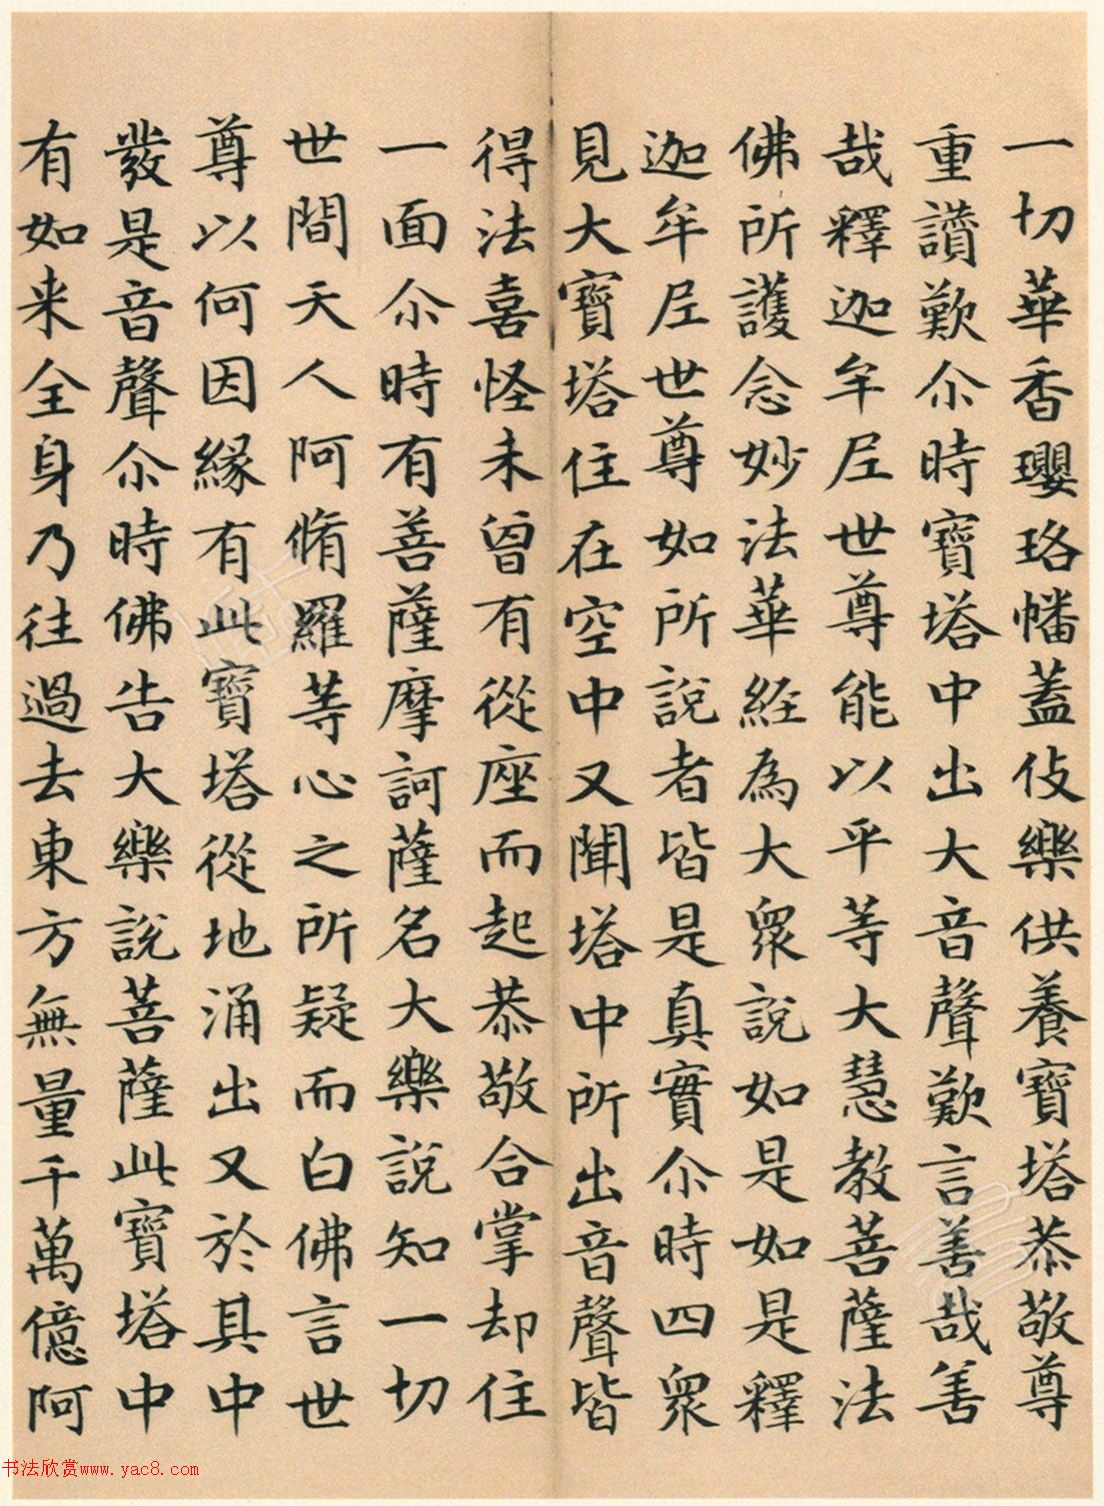 一切華香瓔珞幡蓋伎樂供養寶塔恭敬尊
重讚歎尒時寶塔中出大音聲歎言善哉善
哉釋迦牟尼世尊能以平等大慧教菩薩法
佛所護念妙法華經為大眾說如是如是釋
迦牟尼世尊如所說者皆是真實尒時四眾
見大寶塔住在空中又聞塔中所出音聲皆
得法喜怪未曾有從座而起恭敬合掌却住
一面尒時有菩薩摩訶薩名大樂說知一切
世間天人阿脩羅等心之所疑而白佛言世
尊以何因緣有此寶塔從地涌出又於其中
發是音聲尒時佛告大樂說菩薩此寶塔中
有如来全身乃往過去東方無量千萬億阿
书法欣赏www.yac8.com